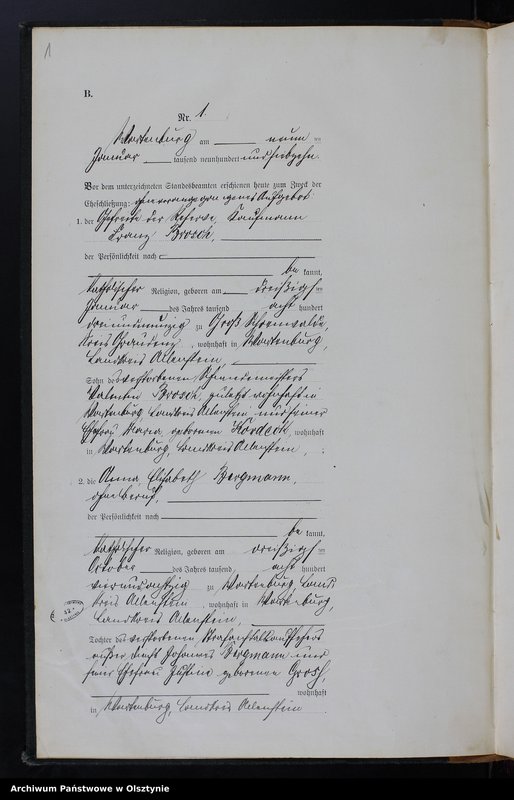 1
B.
Nr. 1.
Wartenburg am neun ten
Januar tausend neunhundert und siebzehn
Vor dem unterzeichneten Standesbeamten erschienen heute zum Zweck der
Eheschließung:
1. der Gefreite der Reserve, Kaufmann
Franz Brosch,
der Persönlichkeit nach
be kannt,
katholischer Religion, geboren am dreißigsten
Januar des Jahres tausend acht hundert
dreiundneunzig zu Groß
Kreis Graudenz, wohnhaft in Wartenburg,
Landkreis Allenstein
Sohn des verstorbenen Schmiedemeisters
Valentin Brosch, zuletzt wohnhaft in
Wartenburg Landkreis Allenstein und seiner
Ehefrau Maria, geborenen wohnhaft
in Wartenburg, Landkreis Allenstein,
2. die Anna Elisabeth Bergmann,
ohne Beruf,
der Persönlichkeit nach
be kannt,
katholischer Religion, geboren am dreißigsten
Oktober des Jahres tausend acht hundert
vierundachtzig zu Wartenburg, Land-
kreis Allenstein, wohnhaft in Wartenburg,
Landkreis Allenstein,
Tochter des verstorbenen Strafanstaltsaufsehers
außer Dienst Johannes Bergmann und
seiner Ehefrau Justine geborenen Grosch,
wohnhaft
in Wartenburg, Landkreis Allenstein
Archiwum Państwowe w Olsztynie